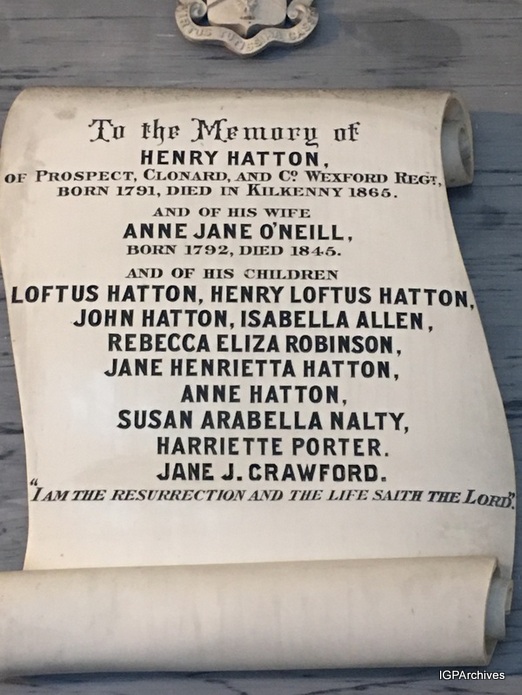 VIRTUS TUTISSIMA CASSIS
To the Memory of
HENRY HATTON,
OF PROSPECT, CLONARD, AND Co. WEXFORD REGT,
BORN 1791, DIED IN KILKENNY 1865.
AND OF HIS WIFE
ANNE JANE O'NEILL,
BORN 1792, DIED 1845.
AND OF HIS CHILDREN
LOFTUS HATTON, HENRY LOFTUS HATTON,
JOHN HATTON, ISABELLA ALLEN,
REBECCA ELIZA ROBINSON,
JANE HENRIETTA HATTON,
ANNE HATTON,
SUSAN ARABELLA NALTY,
HARRIETTE PORTER.
JANE J. CRAWFORD.
"I AM THE RESURRECTION AND THE LIFE SAITH THE LORD".
IGPArchives